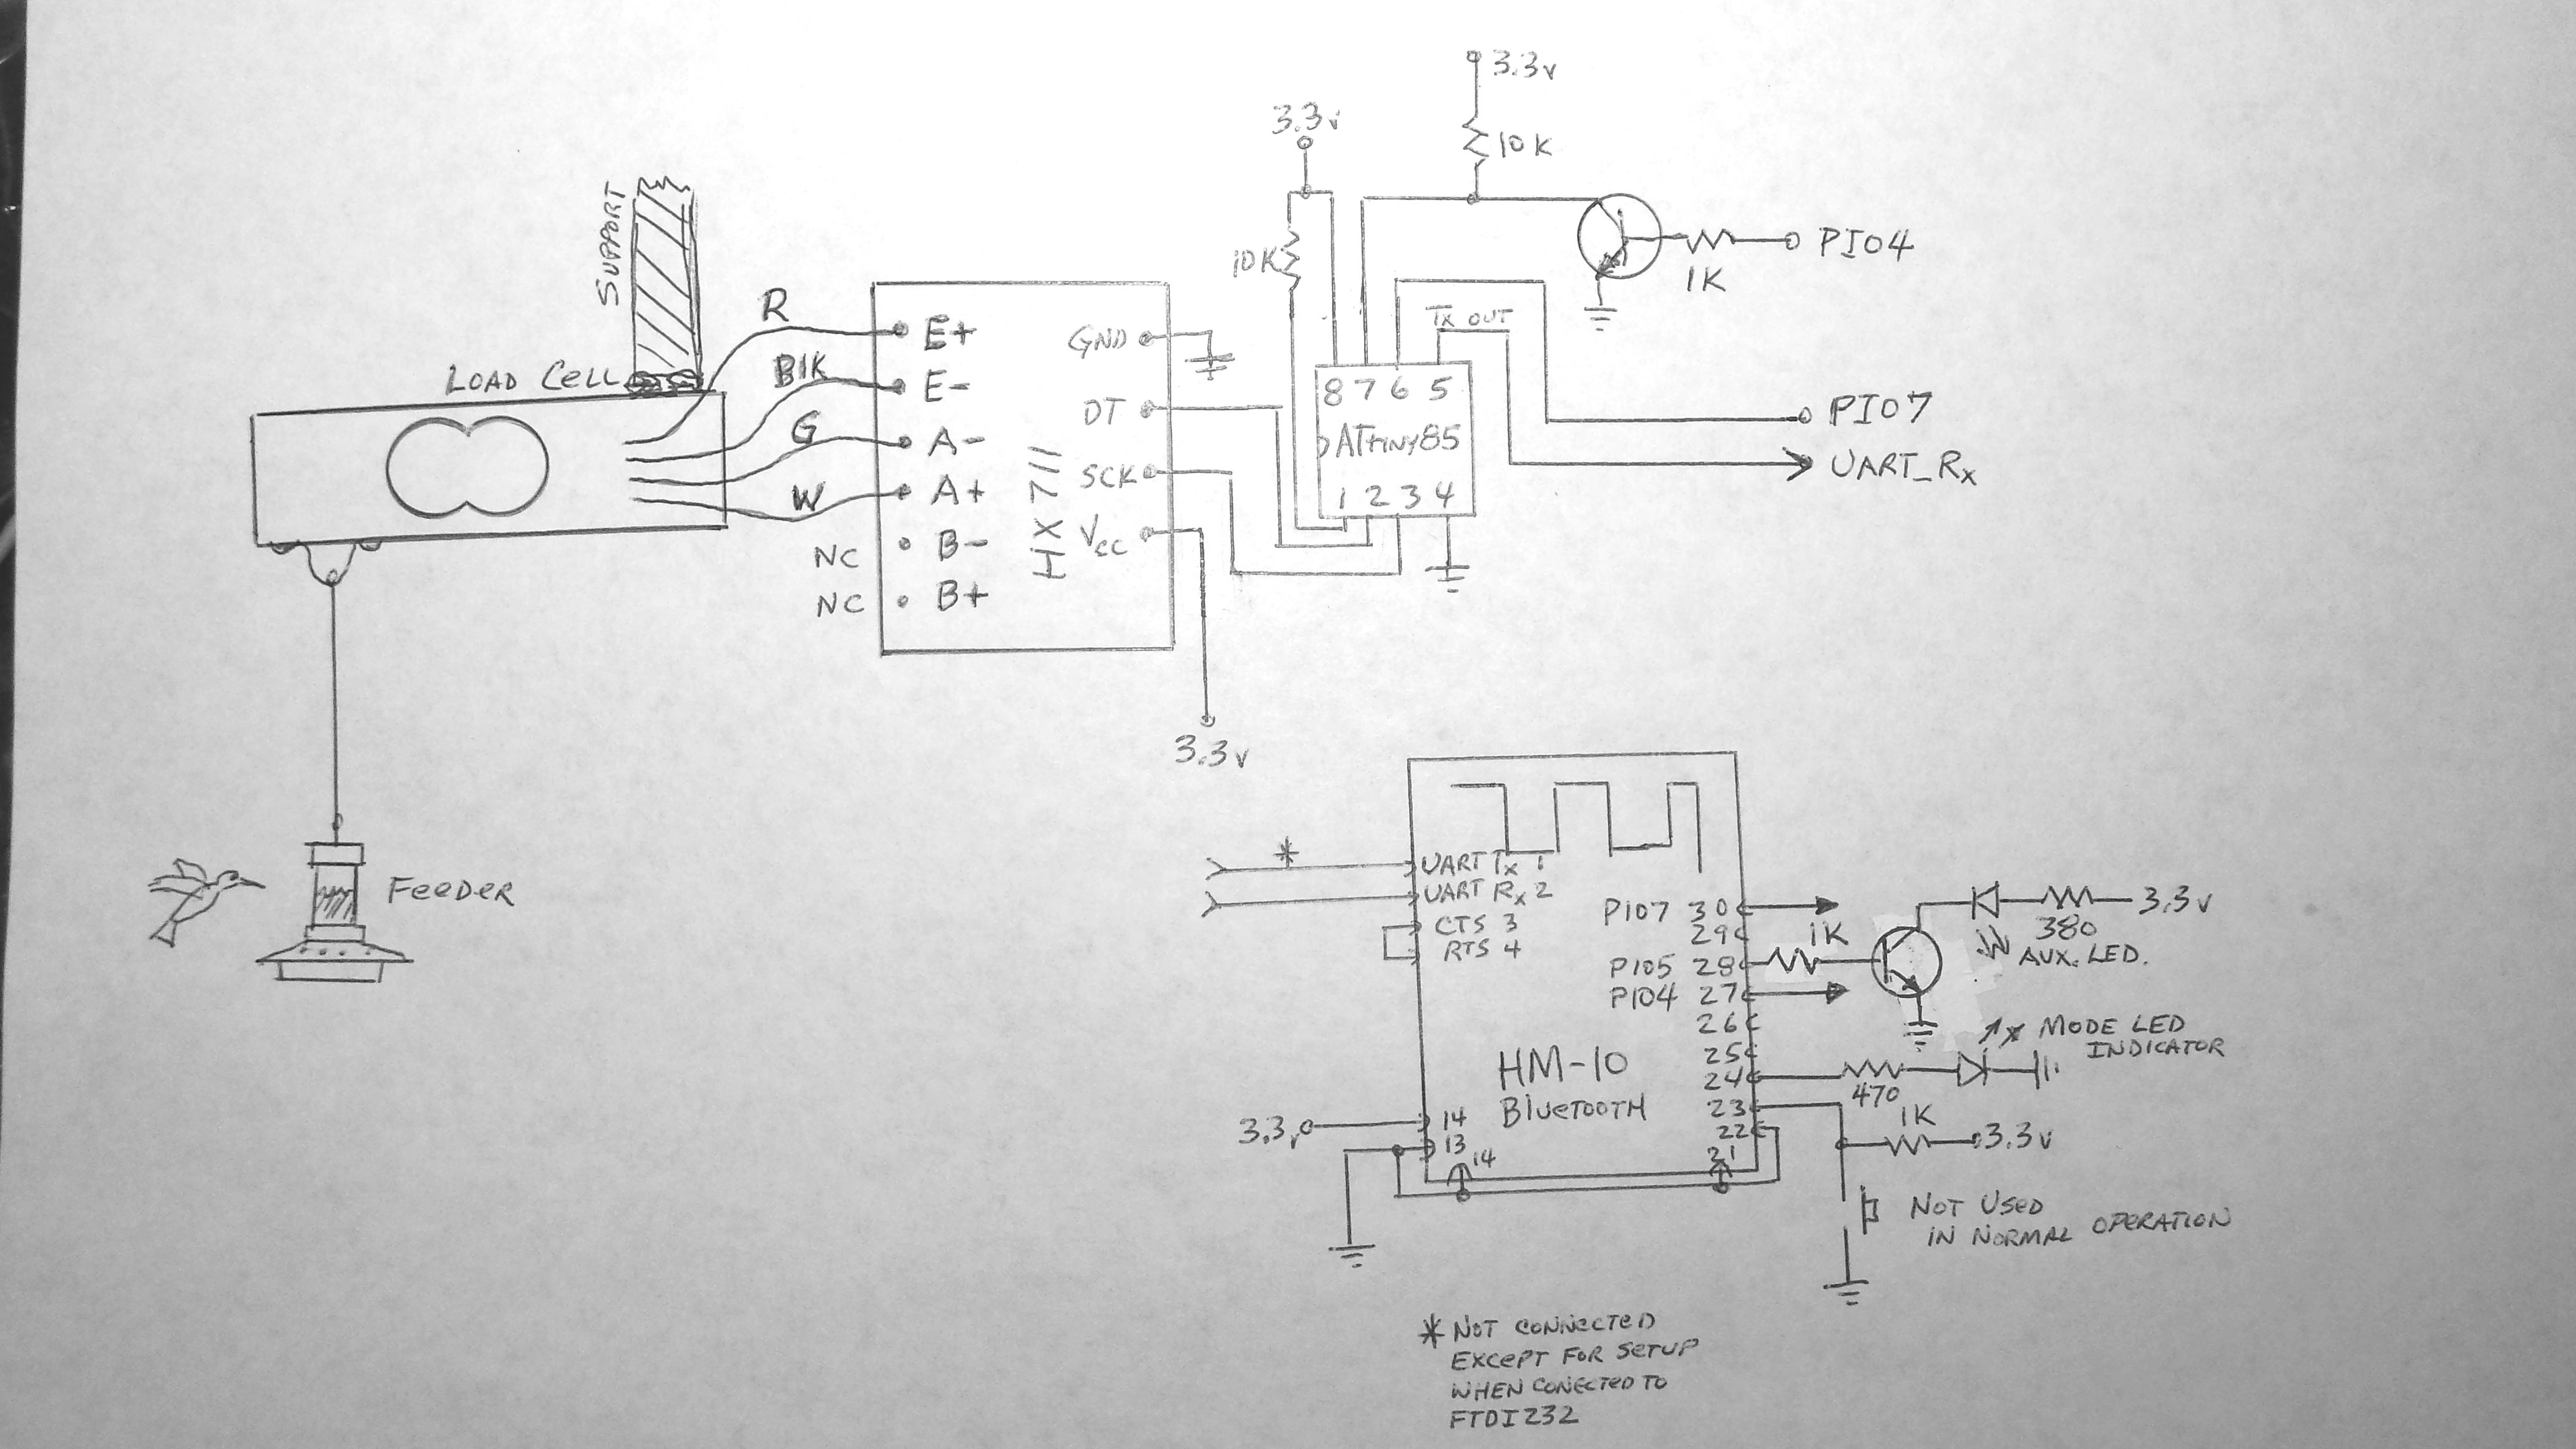 3.3v
3.3v
10K
10K
SUPPORT
PIO4
1K
R
E+
GND
TX OUT
LOAD CELL
BlK
E-
8 7 6 5
DT
PIO7
G
A-
ATtiny85
UART_Rx
SCK
W
A+
HX711
1 2 3 4
NC
B-
Vcc
NC
B+
3.3v
*
UART Tx 1
UART Rx 2
CTS 3
RTS 4
FeeDeR
PIO7 30
29
1K
380
3.3v
AUX. LED.
PIO5 28
PIO4 27
26
25
24
MODE LED
INDICATOR
HM-10
BlueTOOTH
470
23
1K
22
3.3v
3.3v
14
13
14
21
NOT USeD
IN NORMAL OPeRATION
* NOT CONNeCTeD
EXCePT FOR SeTUP
WHEN CONeCTeD TO
FTDI232